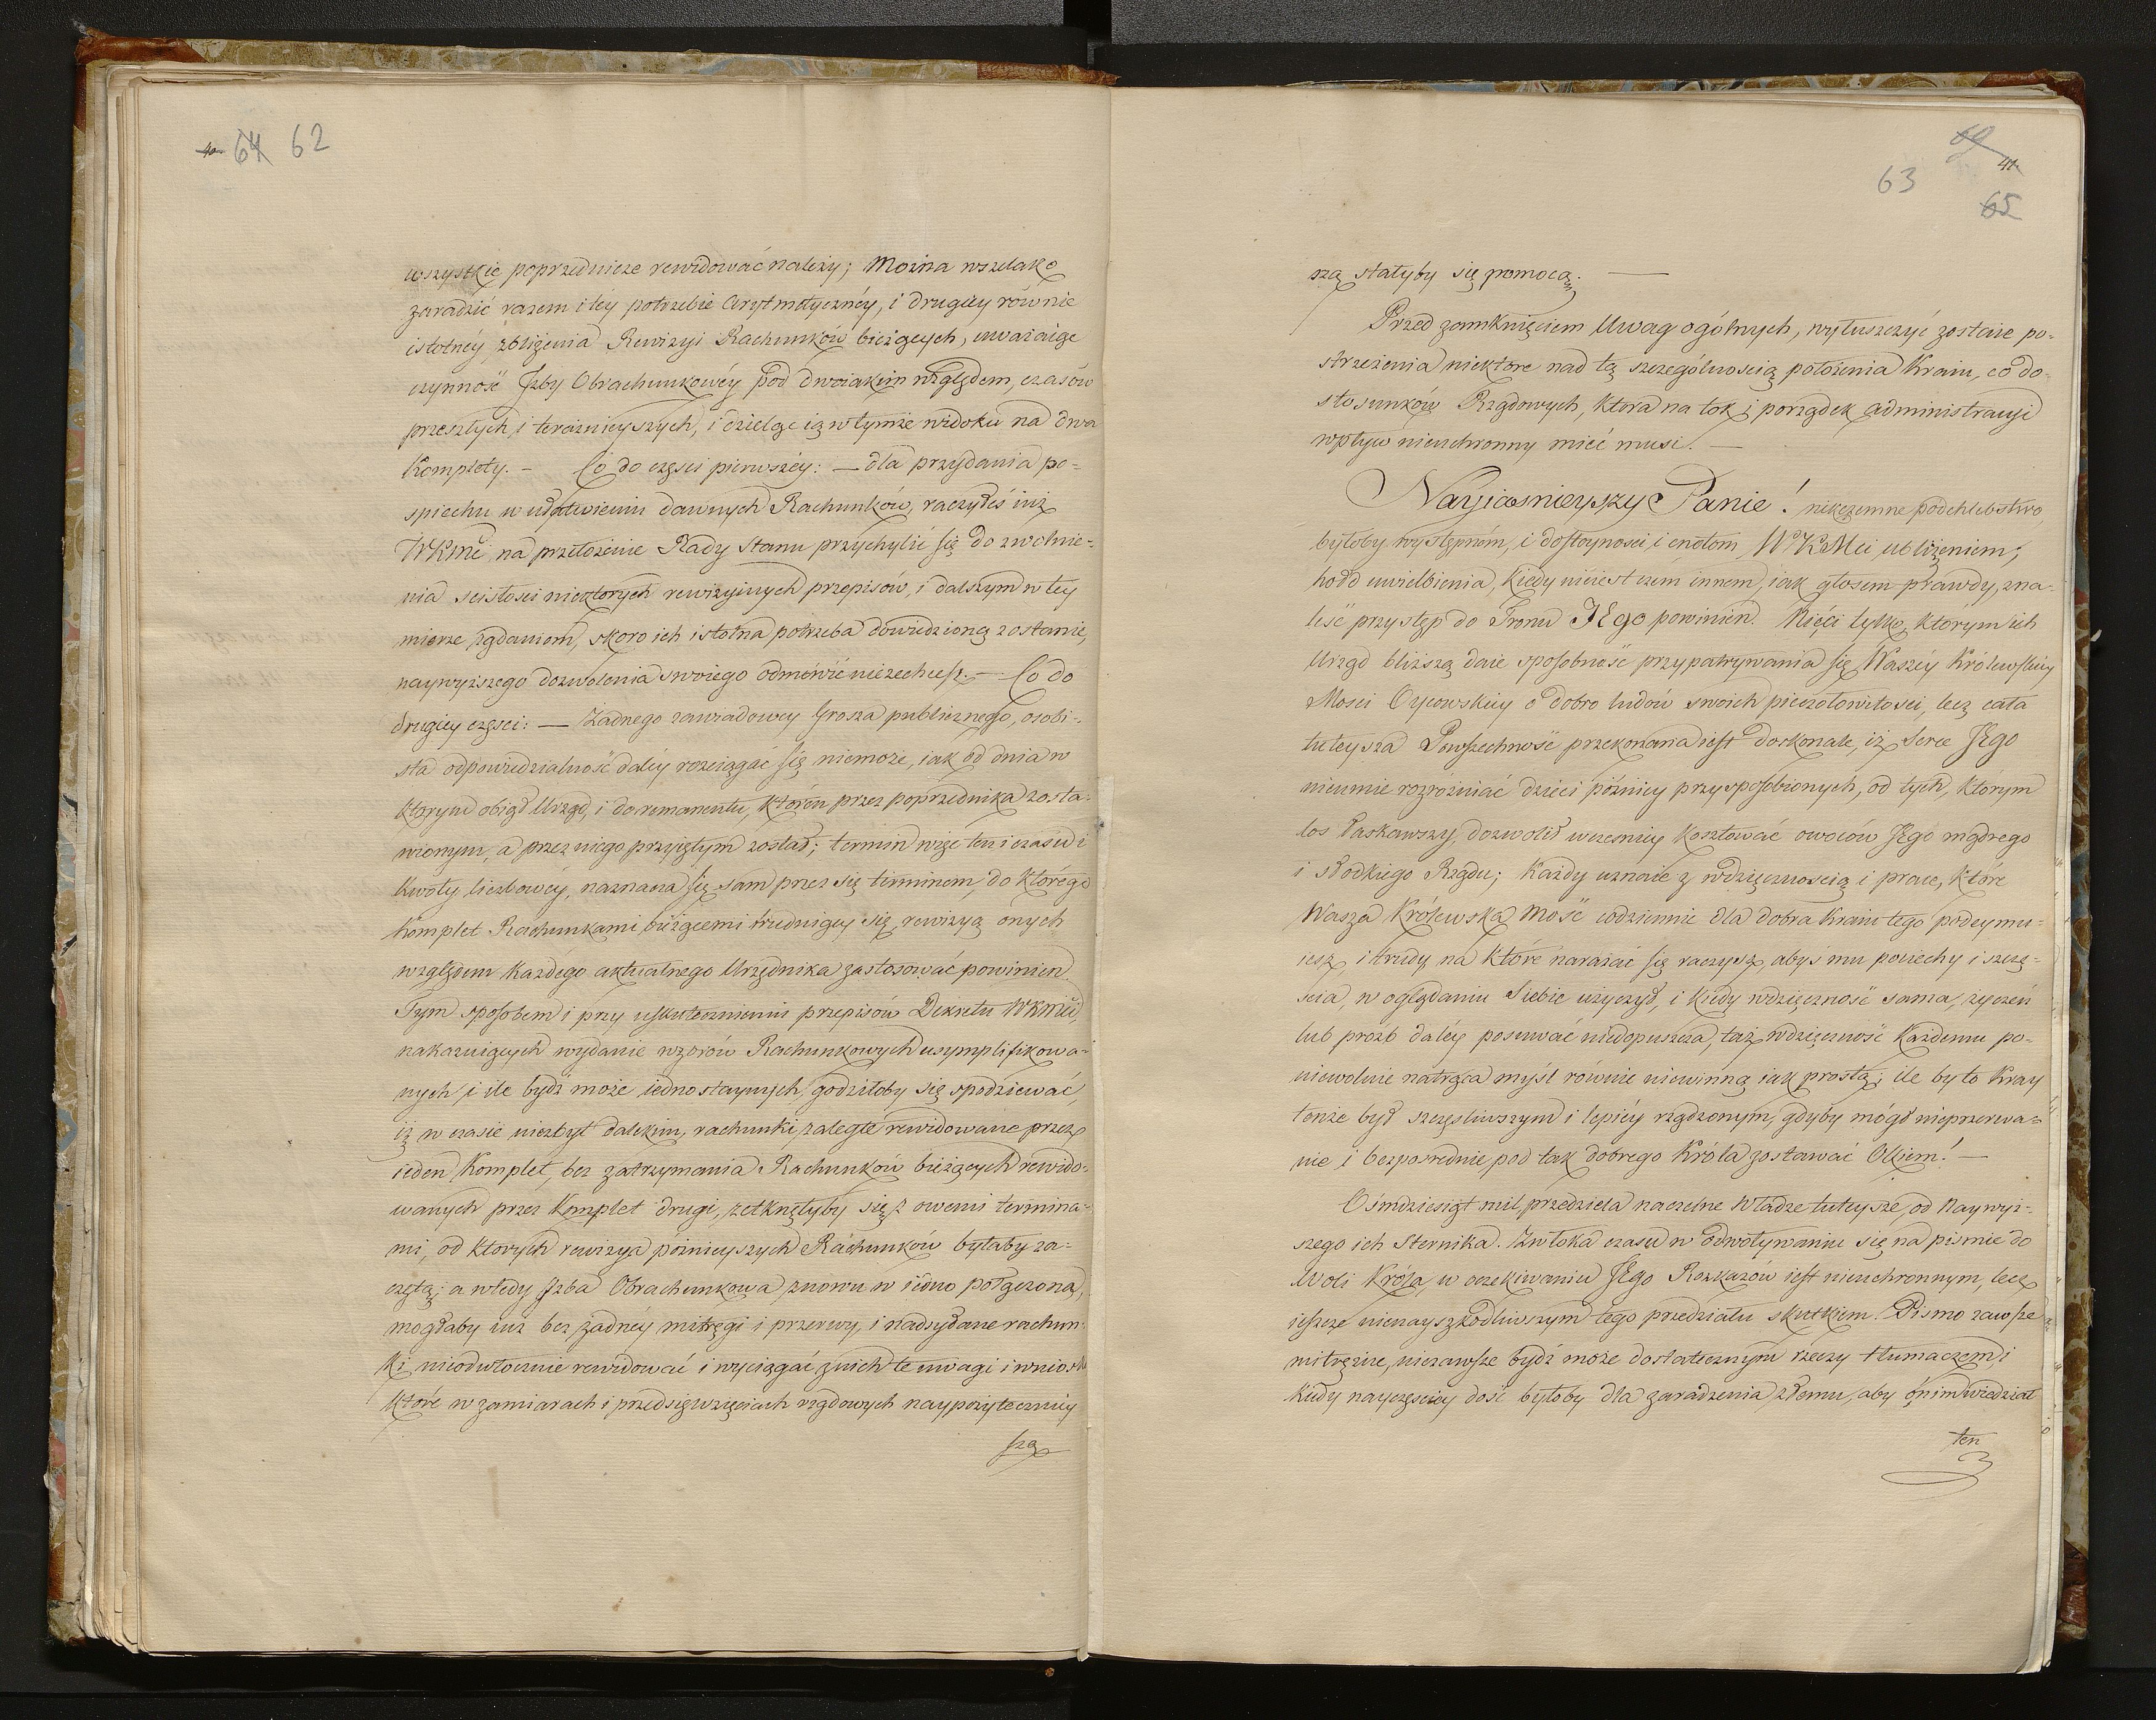 40. 64 62
wszystkie poprzednicze rewidować należy; Można wszelako
zaradzić razem i téy potrzebie Arytmetycznéy, i drugiey równie
istotnéy zbliżenia Rewizyi Rachunków bieżących, uważaiąc
czynność Jzby Obrachunkowéy pod dwoiakim względem, czasów
przeszłych i teraznieyszych, i dzieląc ią w tymże widoku na dwa
Komplety. – Co do częsci pierwszéy: — dla przydania po=
spiechu w ułatwieniu dawnych Rachunków, raczyłeś iuż
WKMć na przełożenie Rady Stanu przychylić się do zwolnie=
nia scisłosci niektorych rewizyinych przepisów, i dalszym w tey
mierze żądaniom, skoro ich istotna potrzeba dowiedzioną zostanie,
naywyższego dozwolenia swoiego odmówić niezechcesz. — Co do
drugiey częsci: — Żadnego zawiadowcy Grosza publicznego, osobi=
sta odpowiedzialność daléy rozciągać się niemoże, iak od dnia w
ktorym obiął Urząd, i do remanentu, ktorem przez poprzednika zosta=
wionym, a przez niego przyiętym został; termin więc ten i czasu i
kwoty liczbowéy, naznacza się sam przez się terminem, do którego
Komplet Rachunkami bieżącemi trudniący się, rewizyą onych
względem każdego aktualnego Urzędnika zastosować powinien.
Tym sposobem i przy uskutecznieniu przepisów Dekretu WKMći,
nakazuiących wydanie wzorów Rachunkowych usymplifikowa=
nych, i ile bydź może iednostaynych, godziłoby się spodziewać,
iż w czasie niezbyt dalekim, rachunki zaległe rewidowane przez
ieden Komplet, bez zatrzymania Rachunków bieżących rewido=
wanych przez Komplet drugi, zetknęłyby się z owemi termina=
mi, od ktorych rewizya późnieyszych Rachunków byłaby za=
czętą; a wtedy Jzba Obrachunkowa znowu w iedno połączona,
mogłaby iuż bez żadnéy mitręgi i przerwy, i nadsyłane rachun=
ki nieodwłocznie rewidować i wyciągać z nich te uwagi i wnioski
które w zamiarach i przedsięwzięciach rządowych naypożyteczniey
szą
60 41.
63
65
szą stałyby się pomocą. —
Przed zamknięciem Uwag ogólnych, wyłuszczyć zostaie po=
strzeżenia niektore nad tą szczególnoscią położenia Kraiu, co do
stosunków Rządowych, ktora na tok i porządek administracyi
wpływ nieuchronny mieć musi. —
Nayiasnieyszy Panie! nikczemne podchlebstwo
byłoby występném, i dostoynosci i cnotom WKMci ubliżeniem;
hołd uwielbienia, kiedy nieiest czém innem, iak głosem prawdy, zna=
leść przystęp do Tronu JEgo powinien. Nieci tylko, którym ich
Urząd bliższą daie sposobność przypatrywania się Waszéy Królewskiey
Mosci Oycowskiey o dobro ludów swoich pieczołowitosci, lecz cała
tuteysza Powszechność przekonana iest doskonale, iż Serce JEgo
nieumie rozróżniać dzieci późniey przysposobionych, od tych, którym
los łaskawszy, dozwolił wczesniey kosztować owoców JEgo mądrego
i słodkiego Rządu; Każdy uznaie z wdzięcznoscią i prace, które
Wasza Królewska Mość codziennie dla dobra Kraiu tego podeymu=
iesz, i trudy, na które narażać się raczysz, abyś mu pociechy i szczę=
scia, w oglądaniu Siebie użyczył, i kiedy wdzięczność sama, życzeń
lub prozb daléy posuwać niedopuszcza, taż wdzięczność każdemu po=
niewolnie natrąca myśl równie niewinną iak prostą; ile by to Kray
tenże był szczęsliwszym i lepiéy rządzonym, gdyby mógł nieprzerwa=
nie i bezposrednie pod tak dobrego Króla zostawać Okiem! —
Osmdziesiąt mil przedziela naczelne Władze tuteysze, od Naywyż=
szego ich Sternika. Zwłoka czasu w odwoływaniu się na pismie do
Woli Króla, w oczekiwaniu JEgo Rozkazów iest nieuchronnym, lecz
ieszcze nienayszkodliwszym tego przedziału skutkiem. Pismo zawsze
mitrężne, niezawsze bydź może dostatecznym rzeczy tłumaczem, i
kiedy nayczęsciey dość byłoby dla zaradzenia złemu, aby o nim wiedział
ten